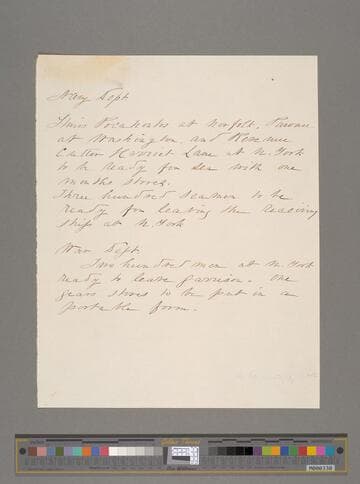 Navy Dept
Steamers Pocahontas at Norfolk, Pawnee
at Washington and Revenue
Cutter Harriet Lane at N. York
to be ready for sea with one
months stores.
Three hundred seamen to be
ready for leaving the receiving
ships at N. York
War Dept
Two hundred men at N. York
ready to leave garrison. One
years stores to be put in a
portable form.
M000330